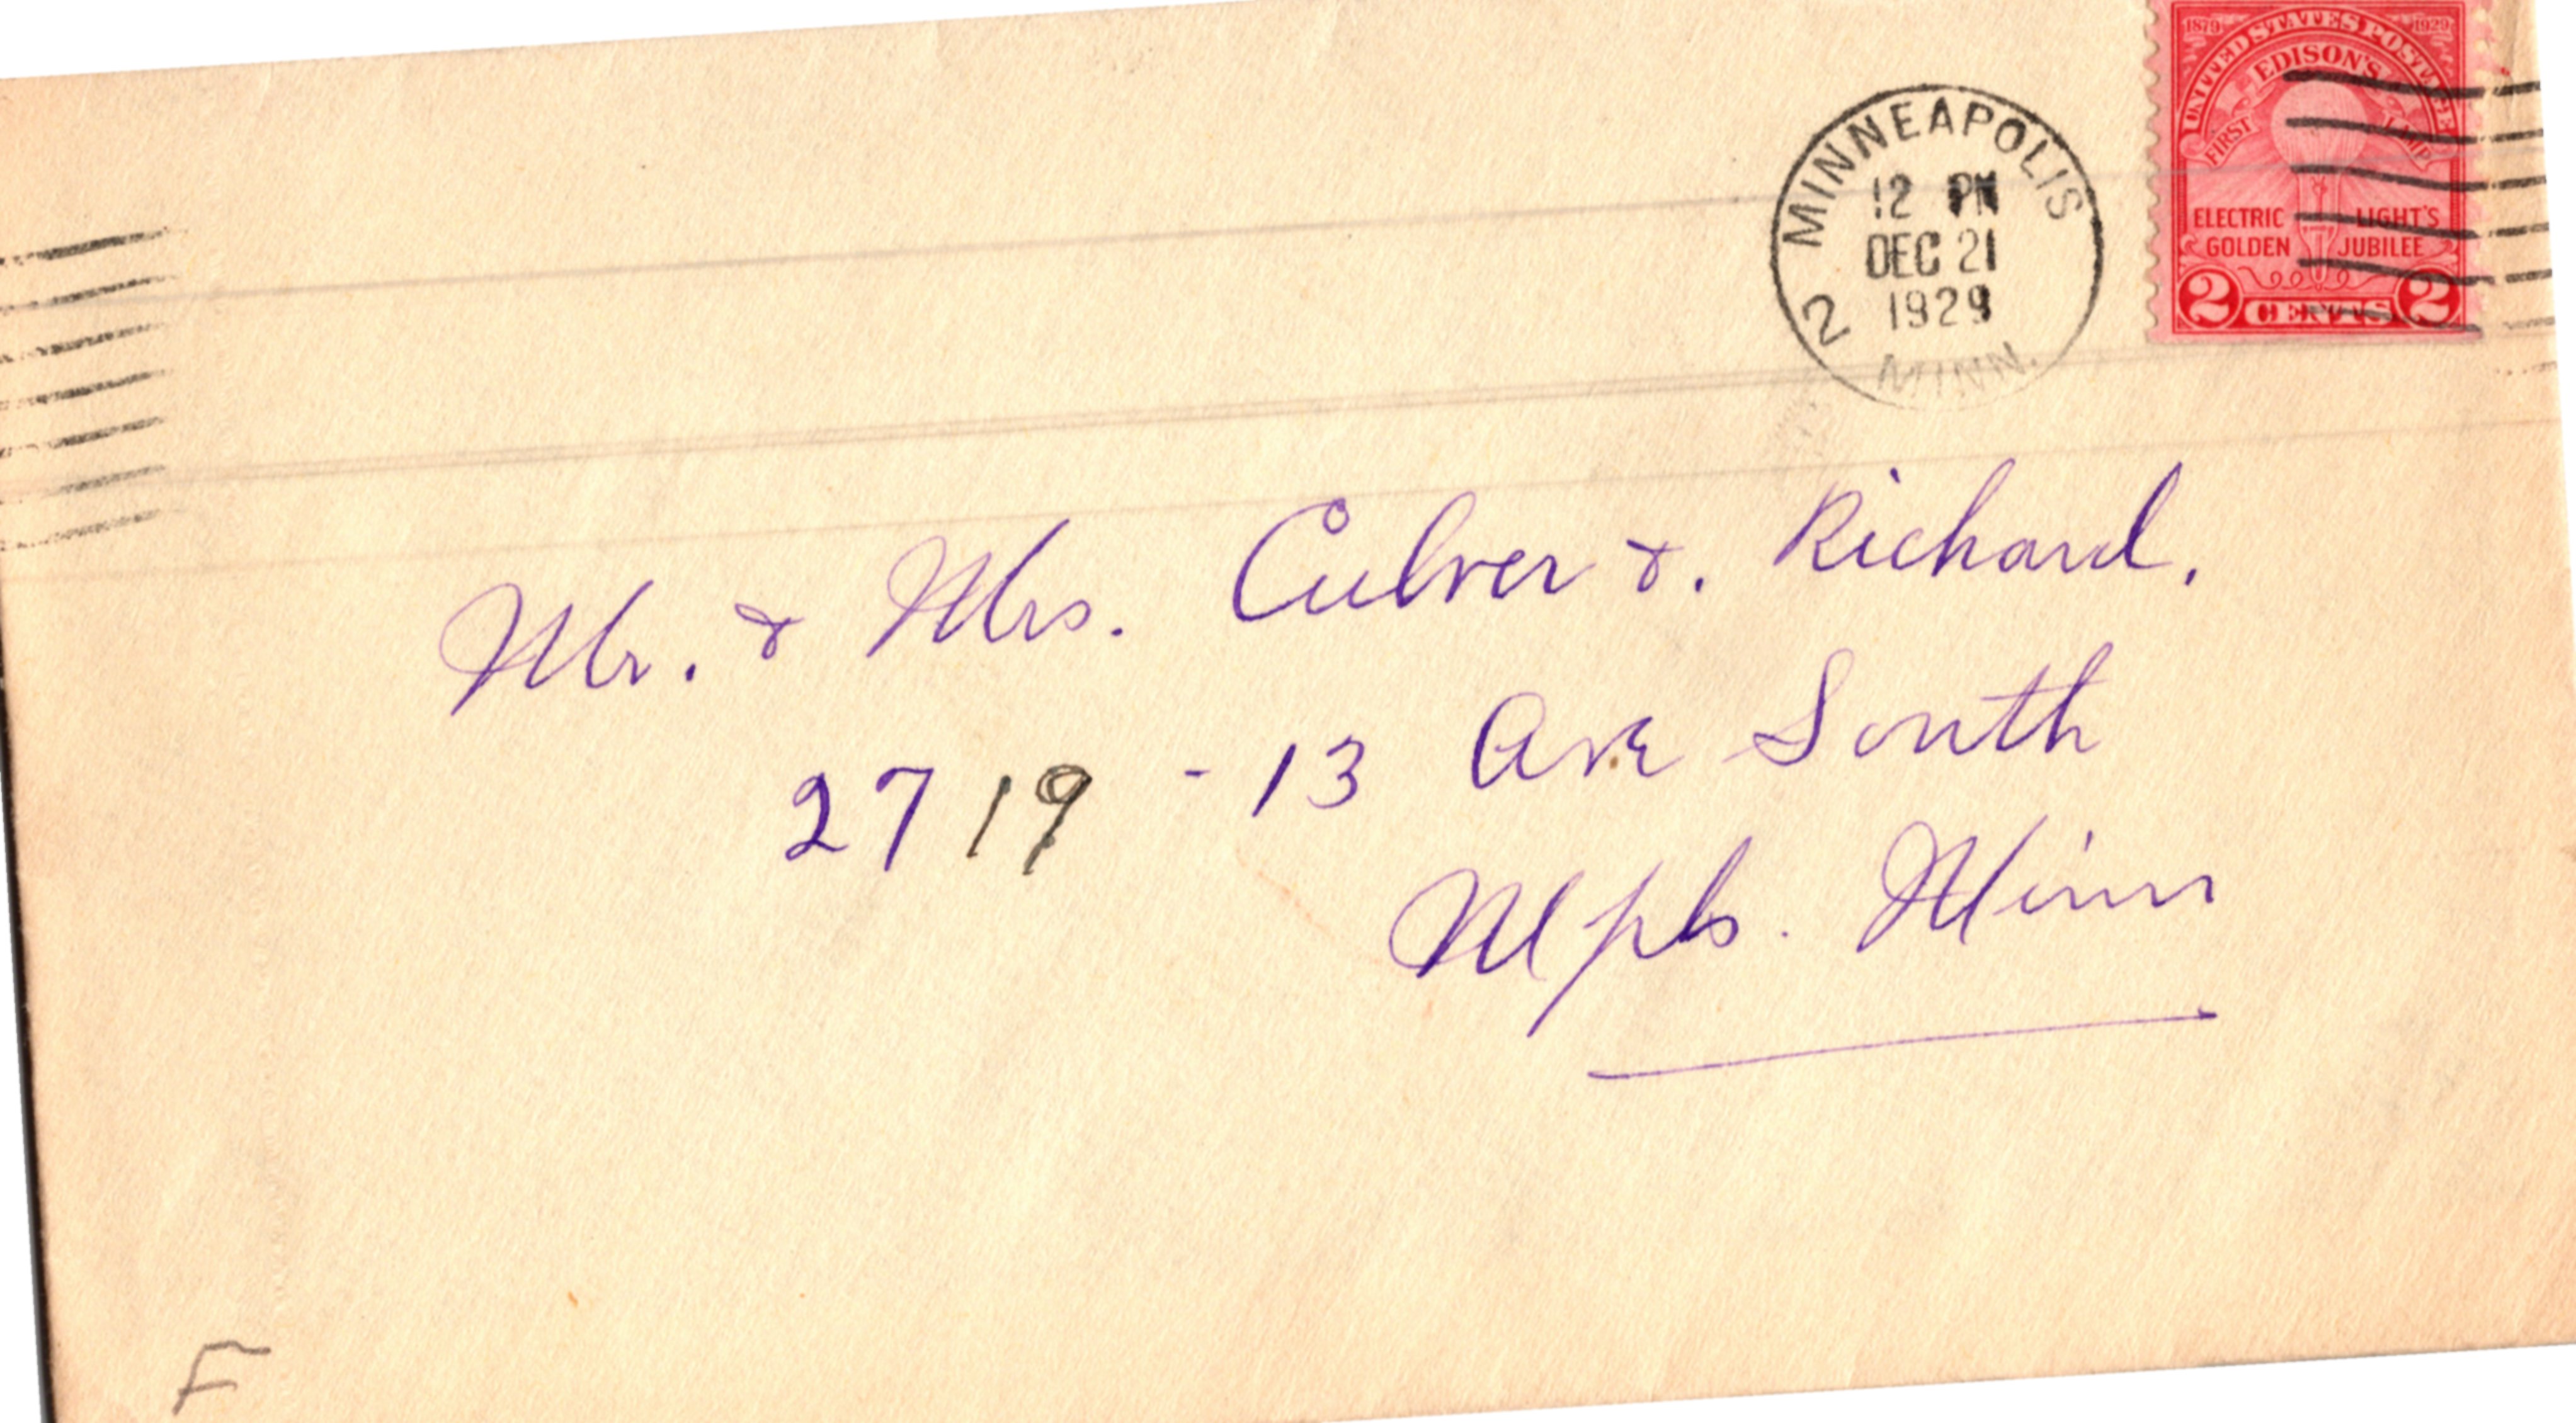 1879 UNITED STATES POSTAGE 1929
EDISON'S
FIRST LAMP
ELECTRIC LIGHT'S
GOLDEN JUBILEE
2 CENTS 2
MINNEAPOLIS
12 PM
DEC 21
1929
2
MINN.
Mr. & Mrs. Culver &. Richard.
2719 - 13 Ave South
Mpls. Minn
F